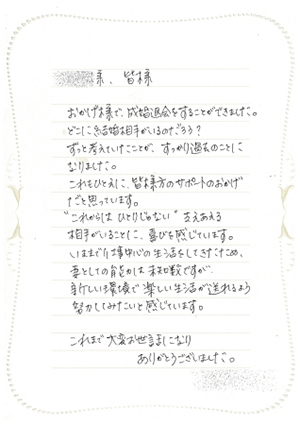 様、皆様
おかげ様で、成婚退会をすることができました。
どこに結婚相手がいるのだろう？
ずっと考えていたことが、すっかり過去のことに
なりました。
これもひとえに、皆様方のサポートのおかげ
だと思っています。
“これからは ひとりじゃない” 支えあえる
相手がいることに、喜びを感じています。
いままで仕事中心の生活をしてきたため、
妻としての能力は未知数ですが、
新しい環境で楽しい生活が送れるよう
努力してみたいと感じています。
これまで大変お世話になり
ありがとうございました。